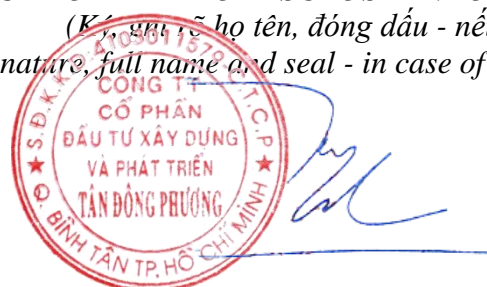 (Ký, ghi rõ họ tên, đóng dấu - nế
nature, full name and seal - in case of
S.Đ.K.K.D:4103011579-C.T.C.P
CÔNG TY
CỔ PHẦN
ĐẦU TƯ XÂY DỰNG
VÀ PHÁT TRIỂN
TÂN ĐÔNG PHƯƠNG
Q. BÌNH TÂN TP. HỒ CHÍ MINH